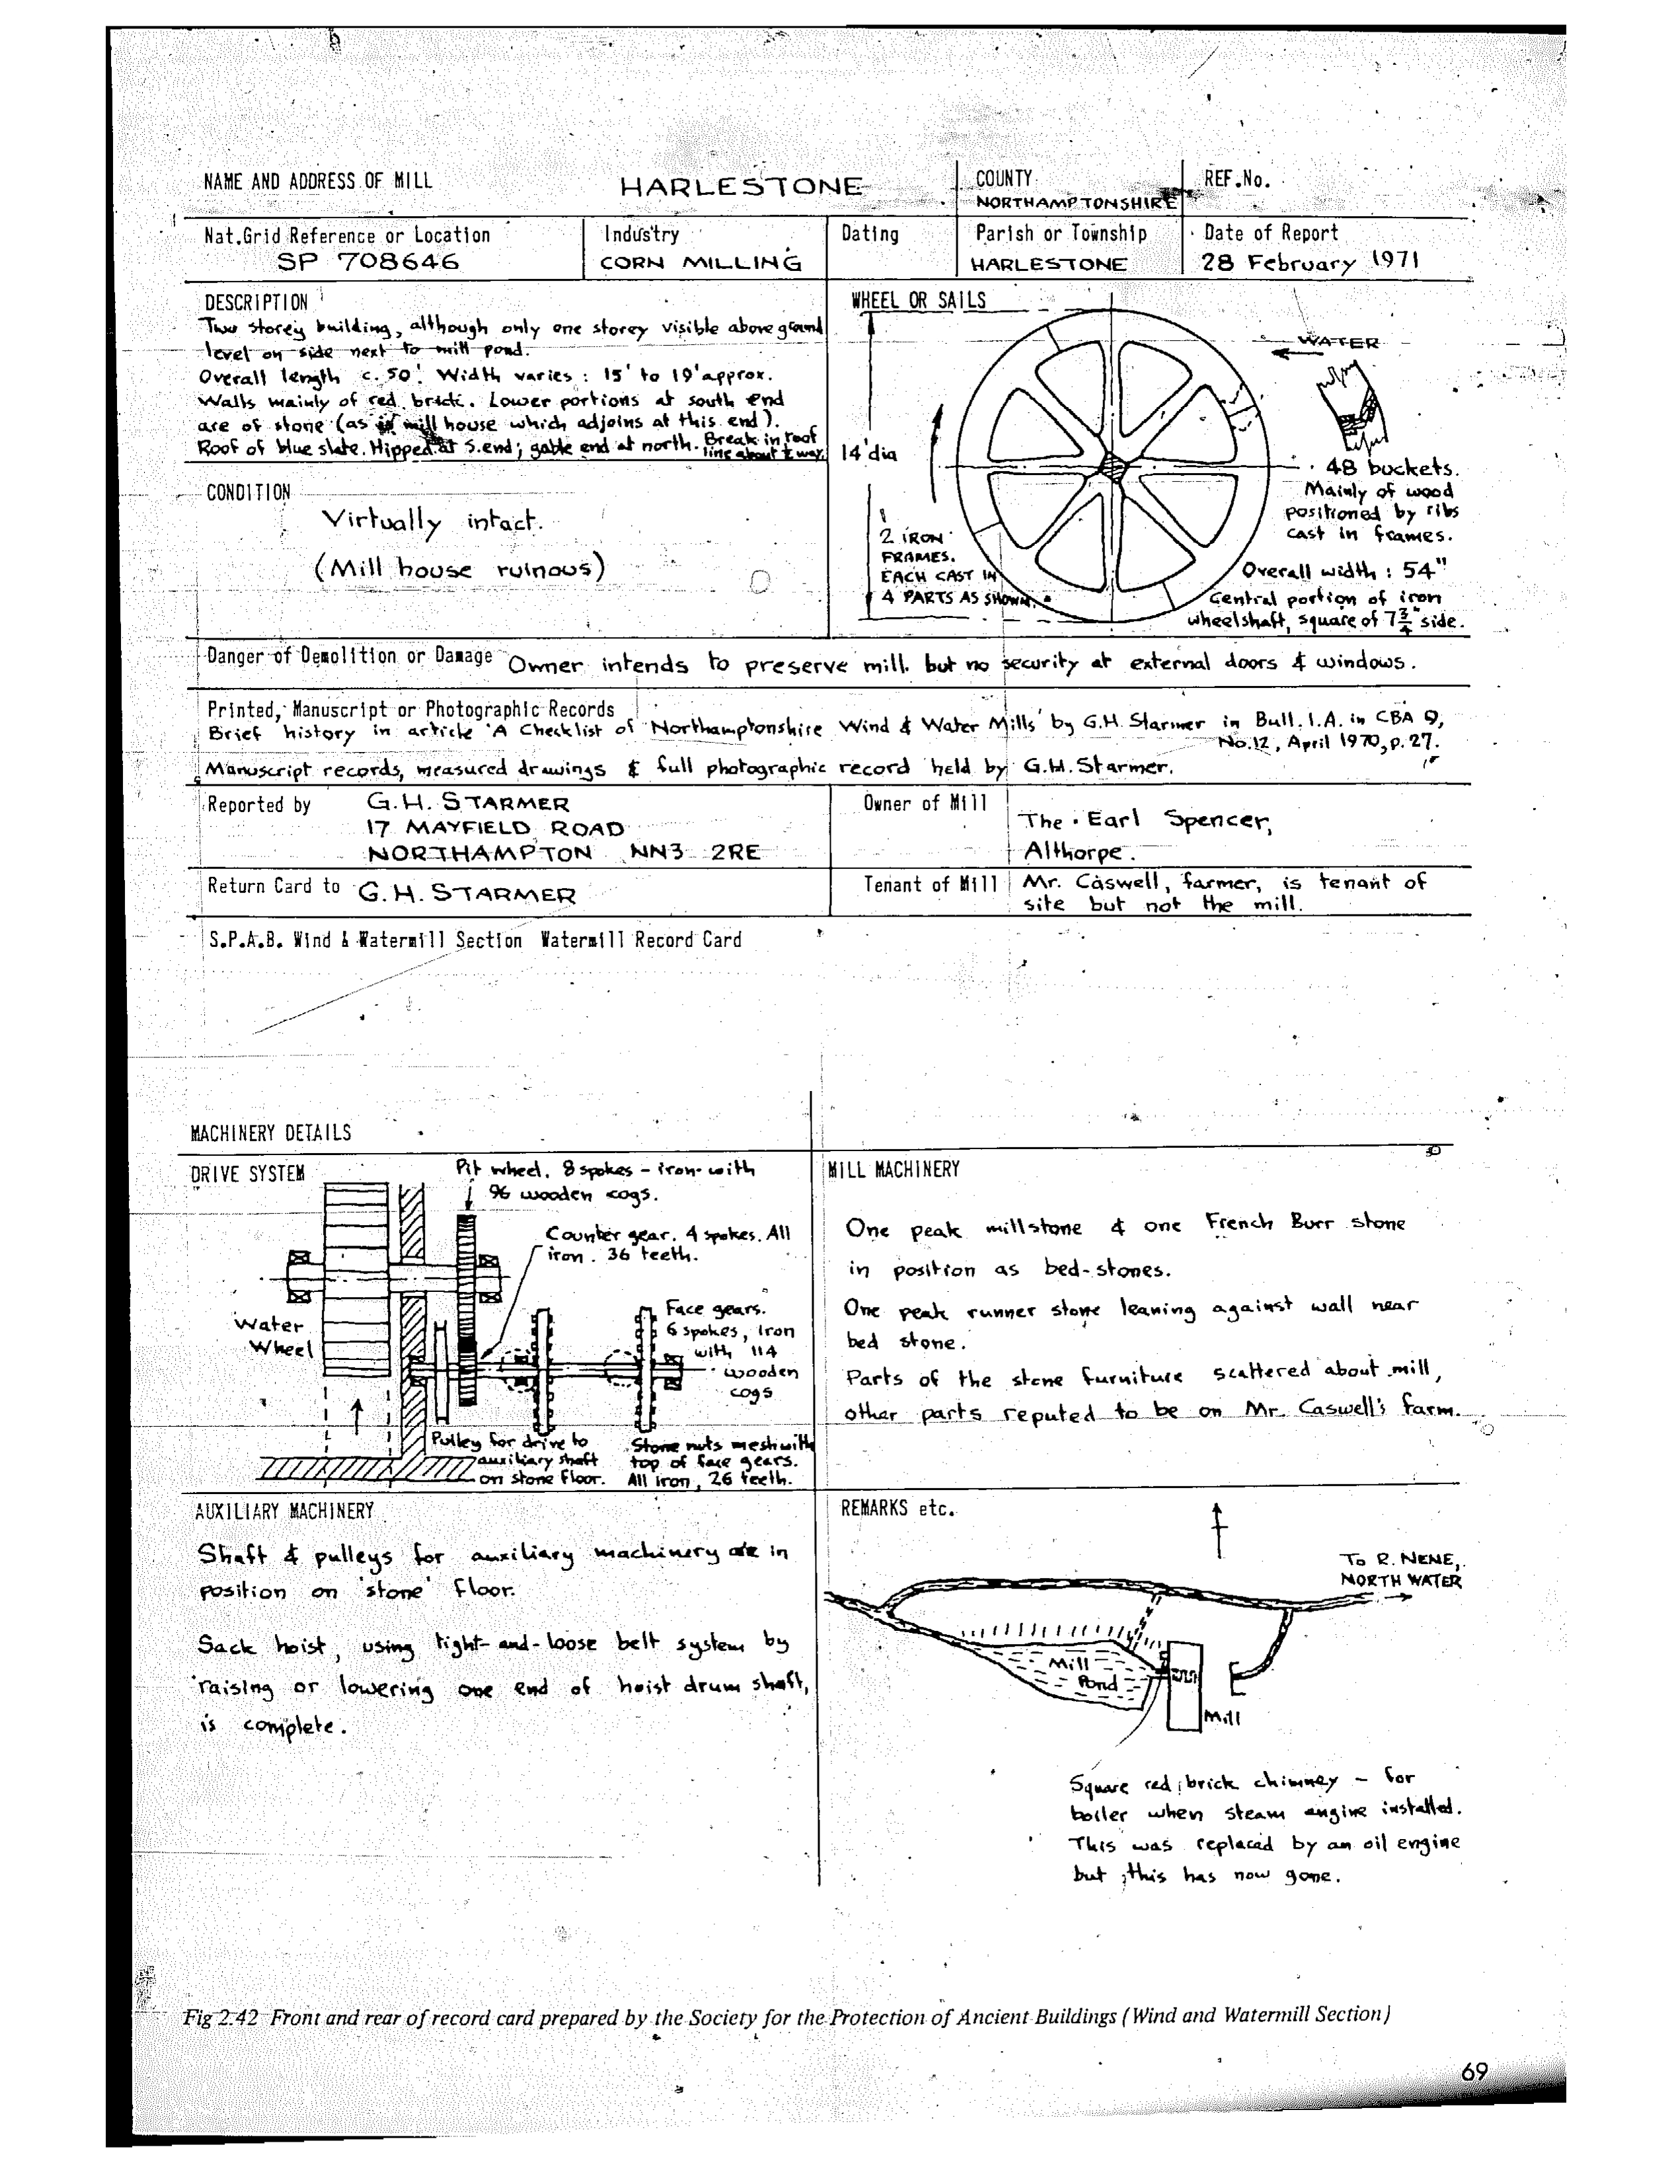 NAME AND ADDRESS OF MILL
HARLESTONE
COUNTY
NORTHAMPTONSHIRE
REF.No.
Nat.Grid Reference or Location
SP 708646
Industry
CORN MILLING
Dating
Parish or Township
HARLESTONE
Date of Report
28 February 1971
DESCRIPTION
Two storey building, although only one storey visible above ground
level on side next to mill pond.
Overall length c. 50'. Width varies : 15' to 19' approx.
Walls mainly of red brick. Lower portions at south end
are of stone (as mill house which adjoins at this end).
Roof of blue slate. Hipped at S.end; gable end at north. Break in roof
line about ½ way.
CONDITION
Virtually intact.
(Mill house ruinous)
WHEEL OR SAILS
WATER
14' dia
2 IRON
FRAMES.
EACH CAST IN
4 PARTS AS SHOWN.
48 buckets.
Mainly of wood
positioned by ribs
cast in frames.
Overall width : 54"
Central portion of iron
wheelshaft, square of 7¾" side.
Danger of Demolition or Damage Owner intends to preserve mill. but no security at external doors & windows.
Printed, Manuscript or Photographic Records
Brief history in article 'A Checklist of Northamptonshire Wind & Water Mills' by G.H. Starmer in Bull. I.A. in CBA 9,
No.12, April 1970, p. 27.
Manuscript records, measured drawings & full photographic record held by G.H. Starmer.
Reported by G.H. STARMER
17 MAYFIELD ROAD
NORTHAMPTON NN3 2RE
Owner of Mill
The Earl Spencer,
Althorpe.
Return Card to G.H. STARMER
Tenant of Mill Mr. Caswell, farmer, is tenant of
site but not the mill.
S.P.A.B. Wind & Watermill Section Watermill Record Card
MACHINERY DETAILS
DRIVE SYSTEM
Pit wheel. 8 spokes - iron with
96 wooden cogs.
Counter gear. 4 spokes. All
iron. 36 teeth.
Water
Wheel
Face gears.
6 spokes, iron
with 114
wooden
cogs
Pulley for drive to
auxiliary shaft
on stone floor.
Stone nuts mesh with
top of face gears.
All iron, 26 teeth.
MILL MACHINERY
One peak millstone & one French Burr stone
in position as bed-stones.
One peak runner stone leaning against wall near
bed stone.
Parts of the stone furniture scattered about mill,
other parts reputed to be on Mr. Caswell's farm.
AUXILIARY MACHINERY
Shaft & pulleys for auxiliary machinery are in
position on 'stone' floor.
Sack hoist, using tight-and-loose belt system by
raising or lowering one end of hoist drum shaft,
is complete.
REMARKS etc.
TO R. NENE,
NORTH WATER
Mill
Pond
Mill
Square red brick chimney - for
boiler when steam engine installed.
This was replaced by an oil engine
but this has now gone.
Fig 2.42 Front and rear of record card prepared by the Society for the Protection of Ancient Buildings (Wind and Watermill Section)
69